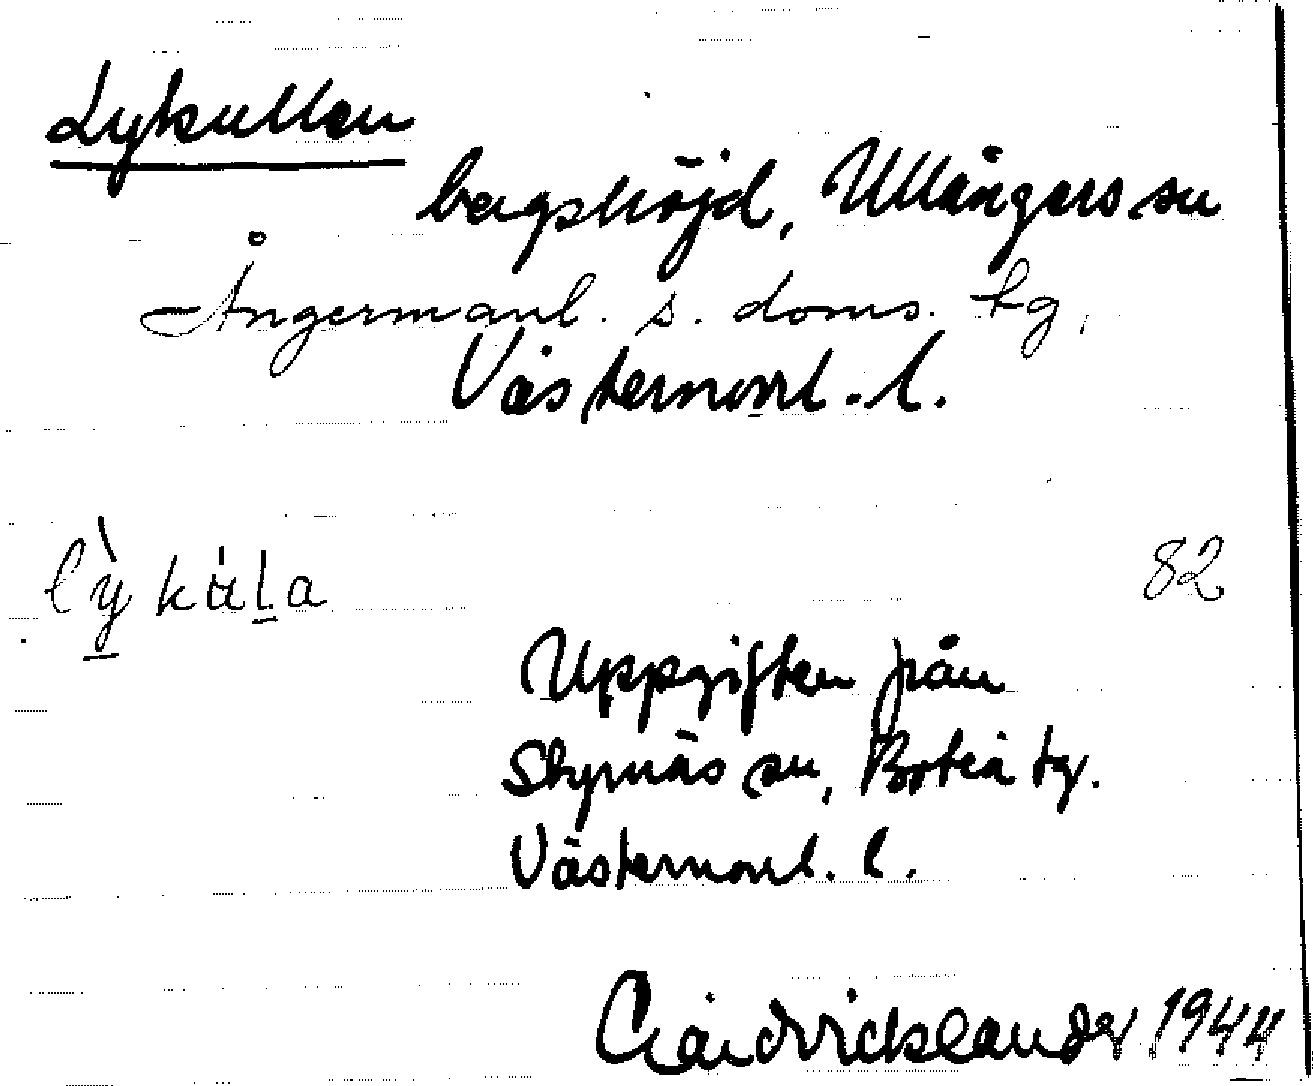 Lykullen
bergshöjd, Ullångers sn
Ångermanl. s. doms. tg,
Västernorrl. l.
lỳkúl̠a 82
Uppgiften från
Skymnäs sn, Boteå tg.
Västernorrl. l.
1944